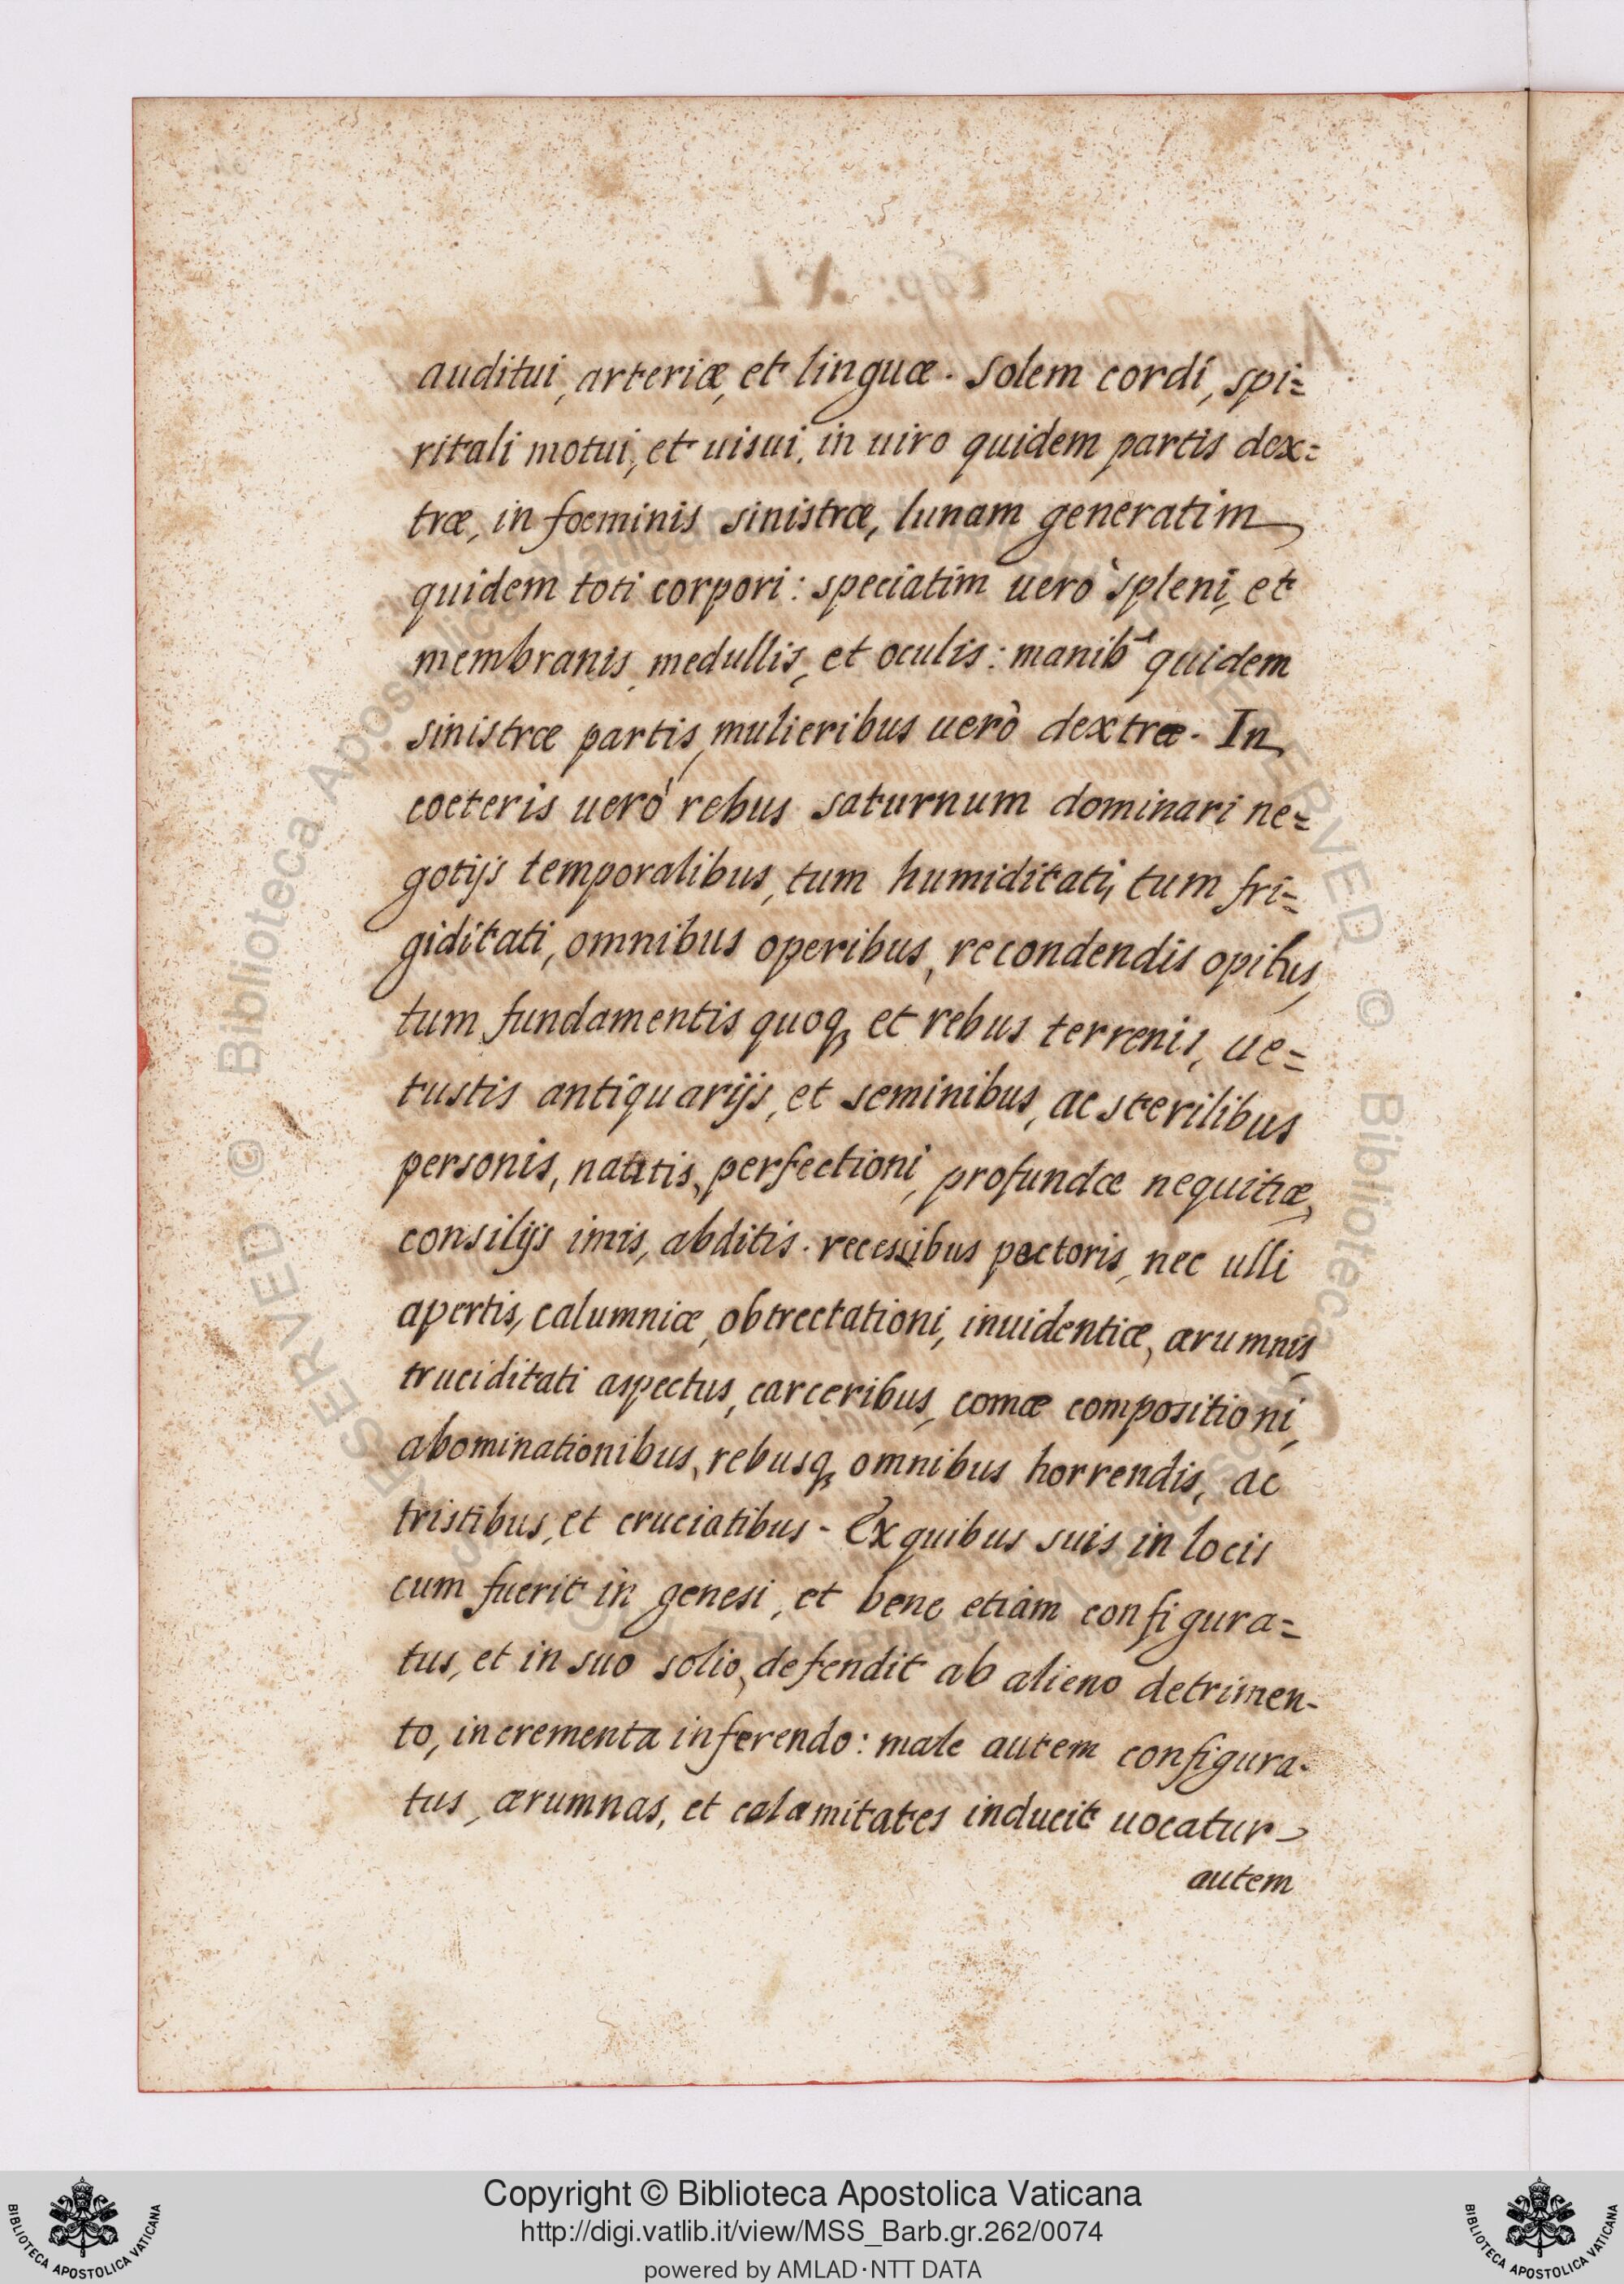 auditui, arteriæ, et linguæ. Solem cordi, spi=
ritali motui, et uisui, in uiro quidem partis dex=
træ, in foeminis sinistræ, lunam generatim
quidem toti corpori: speciatim uerò spleni, et
membranis, medullis, et oculis: manib quidem
sinistræ partis, mulieribus uerò dextræ. In
coeteris uerò rebus saturnum dominari ne=
gotijs temporalibus, tum humiditati, tum fri=
giditati, omnibus operibus, recondendis opibus,
tum fundamentis quoq, et rebus terrenis, ue=
tustis antiquarijs, et seminibus, ac sterilibus
personis, natitis, perfectioni, profundæ nequitiæ,
consilijs imis, abditis. recessibus pectoris, nec ulli
apertis, calumniæ, obtrectationi, inuidentiæ, ærumnis,
truciditati aspectus, carceribus, comæ compositioni,
abominationibus, rebusq, omnibus horrendis, ac
tristibus, et cruciatibus. Ex quibus suis in locis
cum fuerit in genesi, et bene etiam configura=
tus, et in suo solio, defendit ab alieno detrimen-
to, incrementa inferendo: male autem configura-
tus, ærumnas, et calamitates inducit uocatur
autem
Copyright © Biblioteca Apostolica Vaticana
http://digi.vatlib.it/view/MSS_Barb.gr.262/0074
powered by AMLAD·NTT DATA